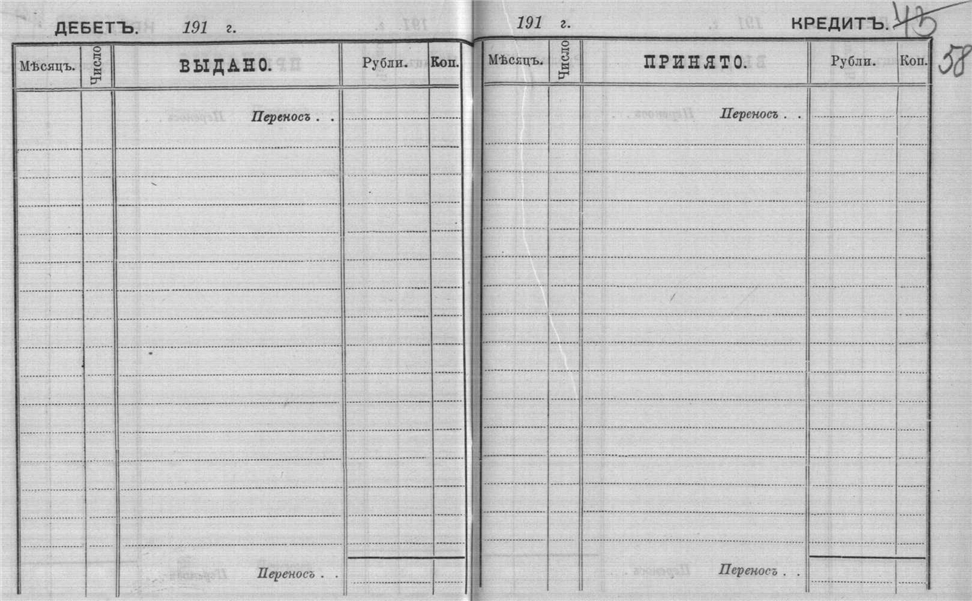 ДЕБЕТЪ. 191 г.
Мѣсяцъ. Число ВЫДАНО. Рубли. Коп.
Переносъ . .
Переносъ . .
191 г. КРЕДИТЪ. 43
58
Мѣсяцъ. Число ПРИНЯТО. Рубли. Коп.
Переносъ . .
Переносъ . .